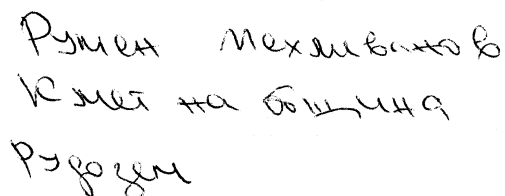 Румен Пехливанов
Кмет на община
Рудозем